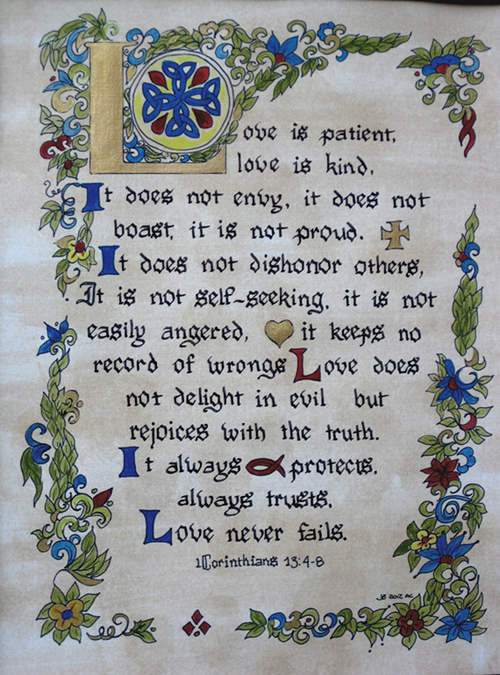 Love is patient,
love is kind,
It does not envy, it does not
boast, it is not proud.
It does not dishonor others,
It is not self-seeking, it is not
easily angered, it keeps no
record of wrongs Love does
not delight in evil but
rejoices with the truth.
It always protects.
always trusts,
Love never fails.
1 Corinthians 13:4-8
JB 2012 AC